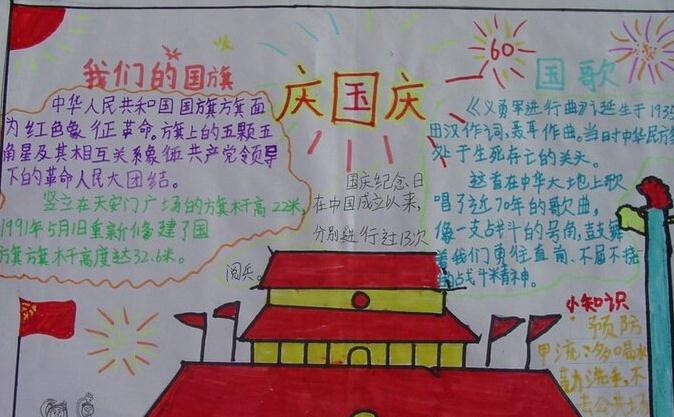 我们的国旗
中华人民共和国国旗旗面
为红色象征革命。旗上的五颗五
角星及其相互关系象征共产党领导
下的革命人民大团结。
竖立在天安门广场的旗杆高22米,
1991年5月1日重新修建了国
旗旗杆高度达32.6米。
庆国庆
国庆纪念日
在中国成立以来,
分别进行过13次
阅兵。
60
国歌
《义勇军进行曲》诞生于1935
田汉作词,聂耳作曲。当时中华民族
处于生死存亡的关头。
这首在中华大地上歌
唱了近70年的歌曲,
像一支战斗的号角,鼓舞
着我们勇往直前、不屈不挠
的战斗精神。
小知识
预防
甲流:多喝水
勤洗手,不
去公共场